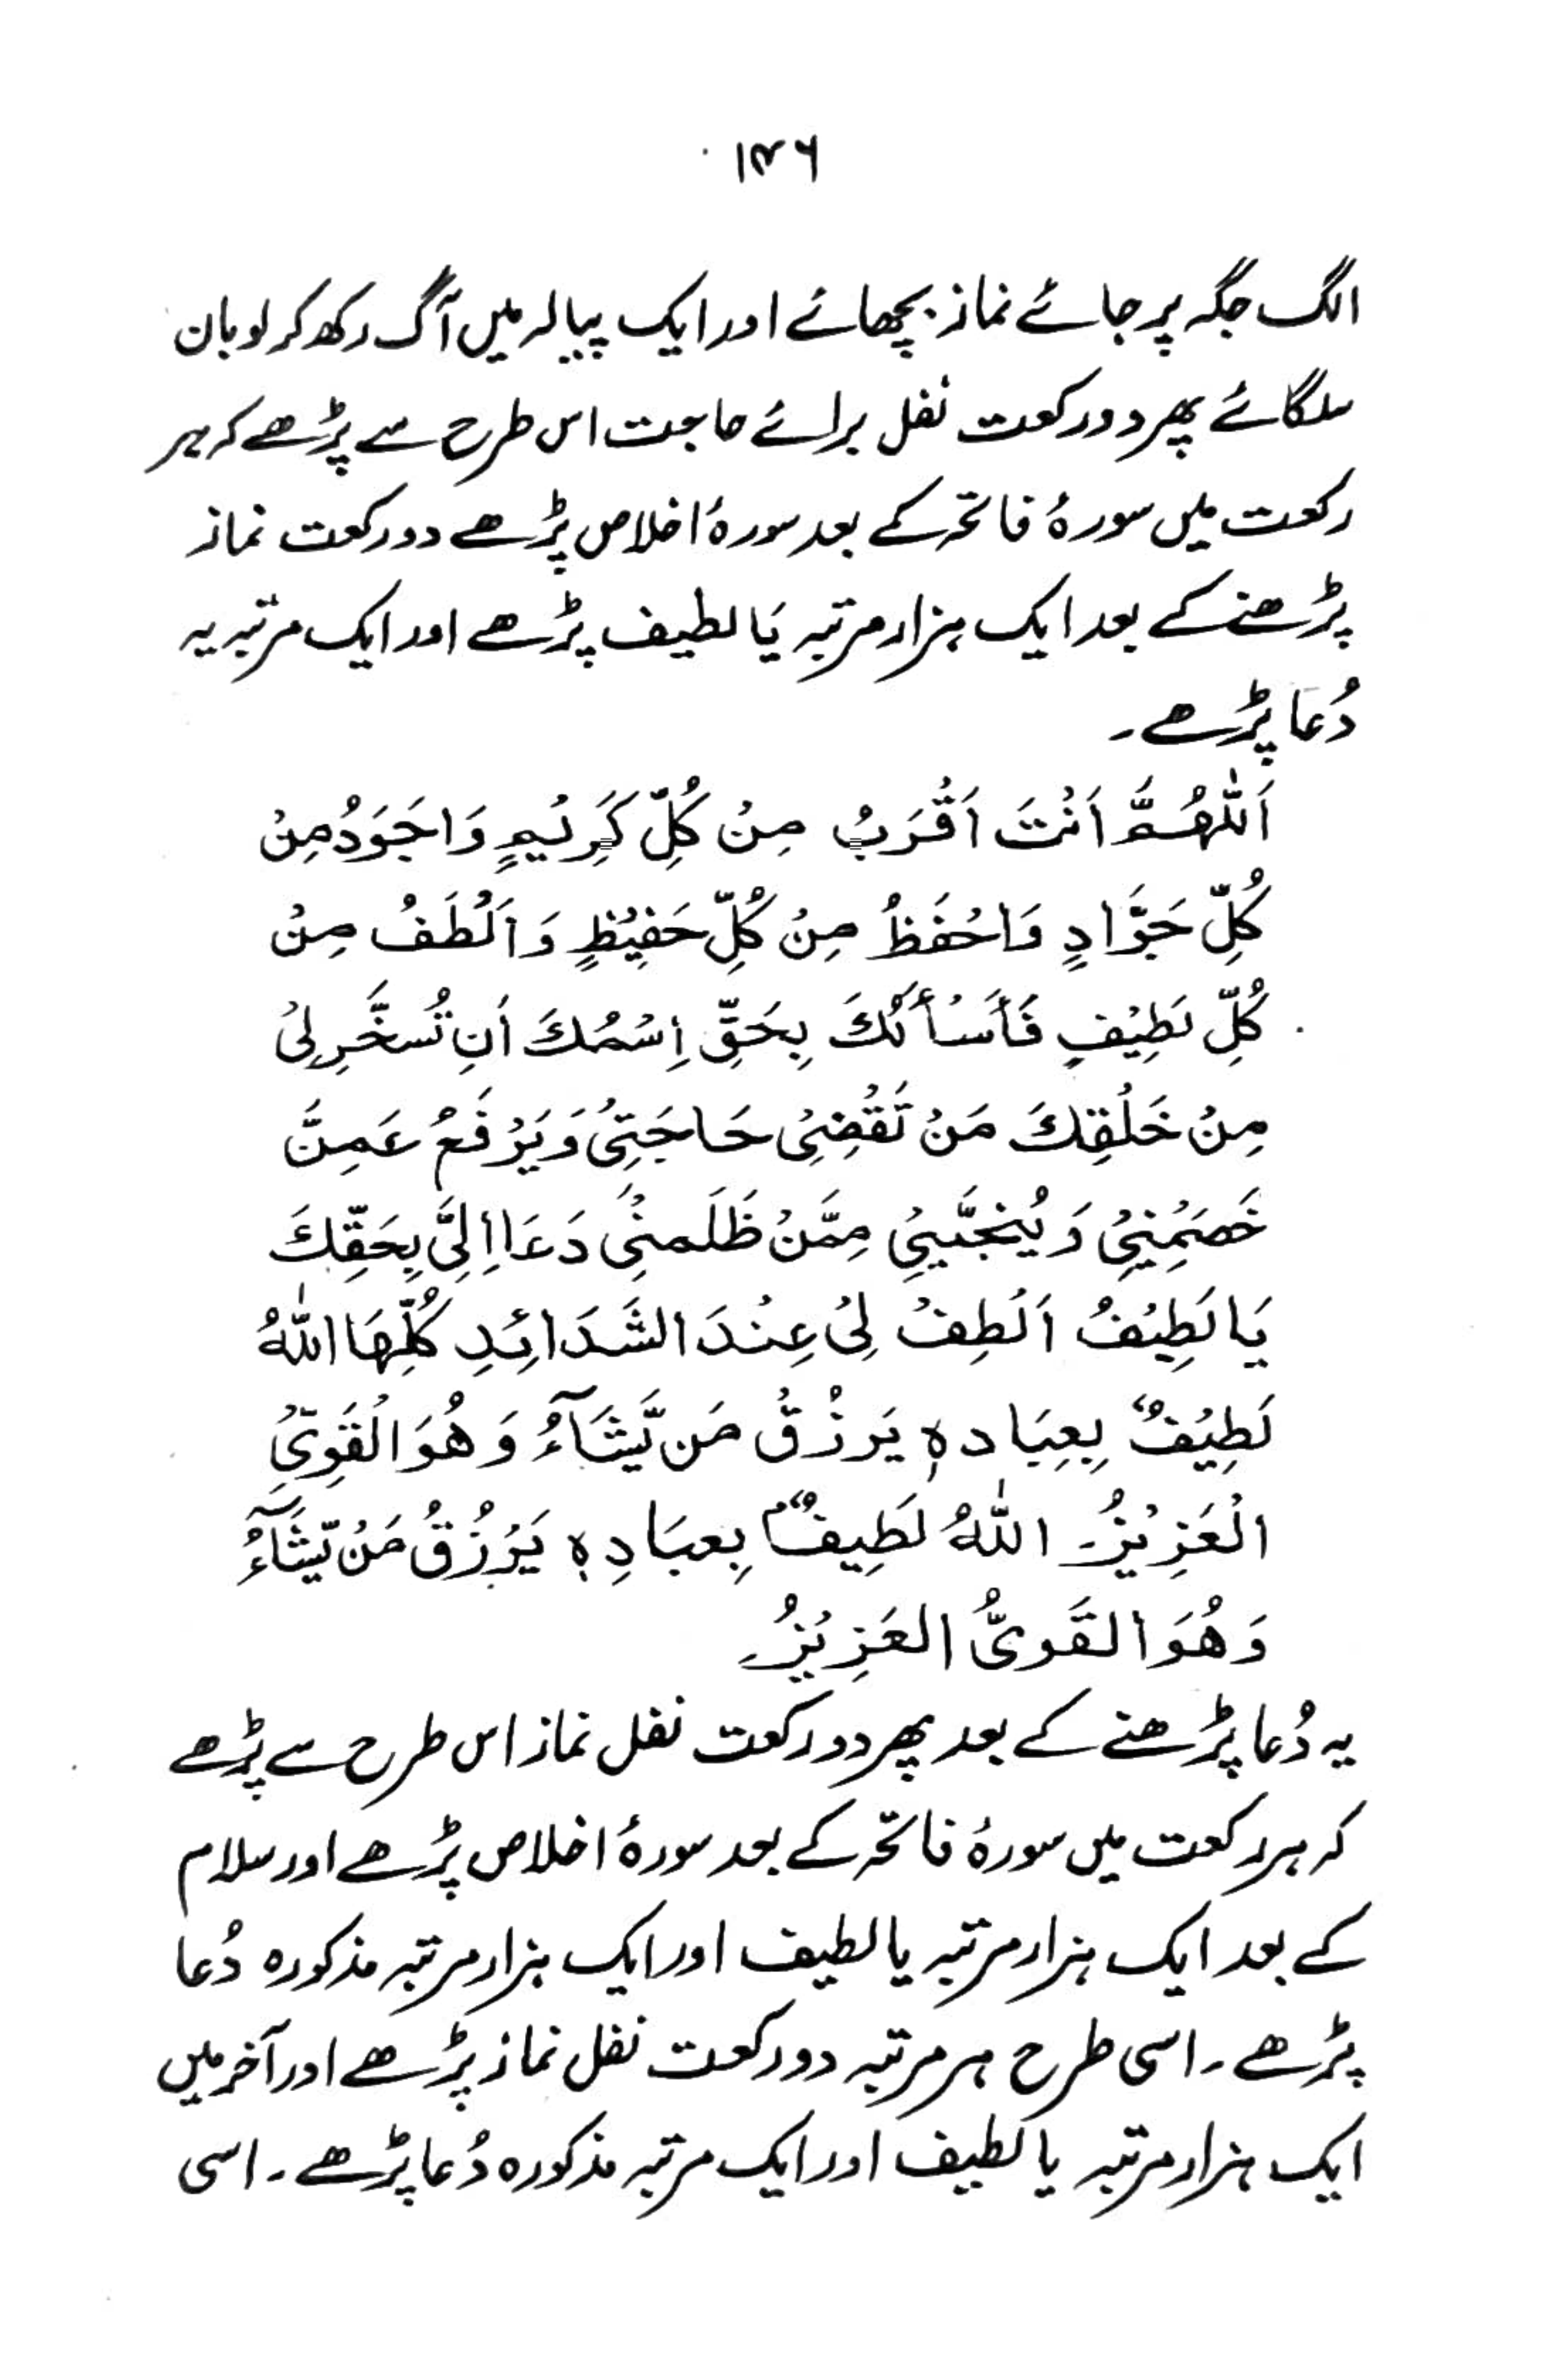 ۱۴۶
الگ جگہ پر جائے نماز بچھائے اور ایک پیالہ میں آگ رکھ کر لوبان
سلگائے پھر دو رکعت نفل برائے حاجت اس طرح سے پڑھے کہ ہر
رکعت میں سورۂ فاتحہ کے بعد سورۂ اخلاص پڑھے دو رکعت نماز
پڑھنے کے بعد ایک ہزار مرتبہ یَا لطیف پڑھے اور ایک مرتبہ یہ
دُعَا پڑھے۔
اَللّٰھُمَّ اَنْتَ اَقْرَبُ مِنْ کُلِّ کَرِیْمٍ وَاجَوَدُ مِنْ
کُلِّ جَوَّادٍ وَاحْفَظُ مِنْ کُلِّ حَفِیْظٍ وَ اَلْطَفُ مِنْ
کُلِّ لَطِیْفٍ فَأَسْأَلُكَ بِحَقِّ اِسْمُكَ اَنِ تُسَخَّرِ لِیْ
مِنْ خَلْقِكَ مَنْ تَقْضِیْ حَاجَتِیْ وَیَرْفَعُ عَمِنَّ
خَصَمِنِیْ وَ یُنْجَّیِیْ مِمَّنْ ظَلَمنِیْ دَعَا اِلِیَّ بِحَقِّكَ
یَا لَطِیْفُ اَلْطِفْ لِیْ عِنْدَ الشَّدَائِدِ کُلِّھَا اللّٰهُ
لَطِیْفٌ بِعِبَادهٖ یَرزْقُ مَن یَّشَآءُ وَ ھُوَ الْقَوِیُّ
الْعَزِیْزُ۔ اللّٰهُ لَطِیفٌ بِعبَادِهٖ یَرْزُقُ مَنْ یَّشَآءُ
وَ ھُوَ القَویُّ العَزِیْزُ۔
یہ دُعا پڑھنے کے بعد پھر دو رکعت نفل نماز اس طرح سے پڑھے
کہ ہر رکعت میں سورۂ فاتحہ کے بعد سورۂ اخلاص پڑھے اور سلام
کے بعد ایک ہزار مرتبہ یا لطیف اور ایک ہزار مرتبہ مذکورہ دُعا
پڑھے۔ اسی طرح ہر مرتبہ دو رکعت نفل نماز پڑھے اور آخر میں
ایک ہزار مرتبہ یا لطیف اور ایک مرتبہ مذکورہ دُعا پڑھے۔ اسی